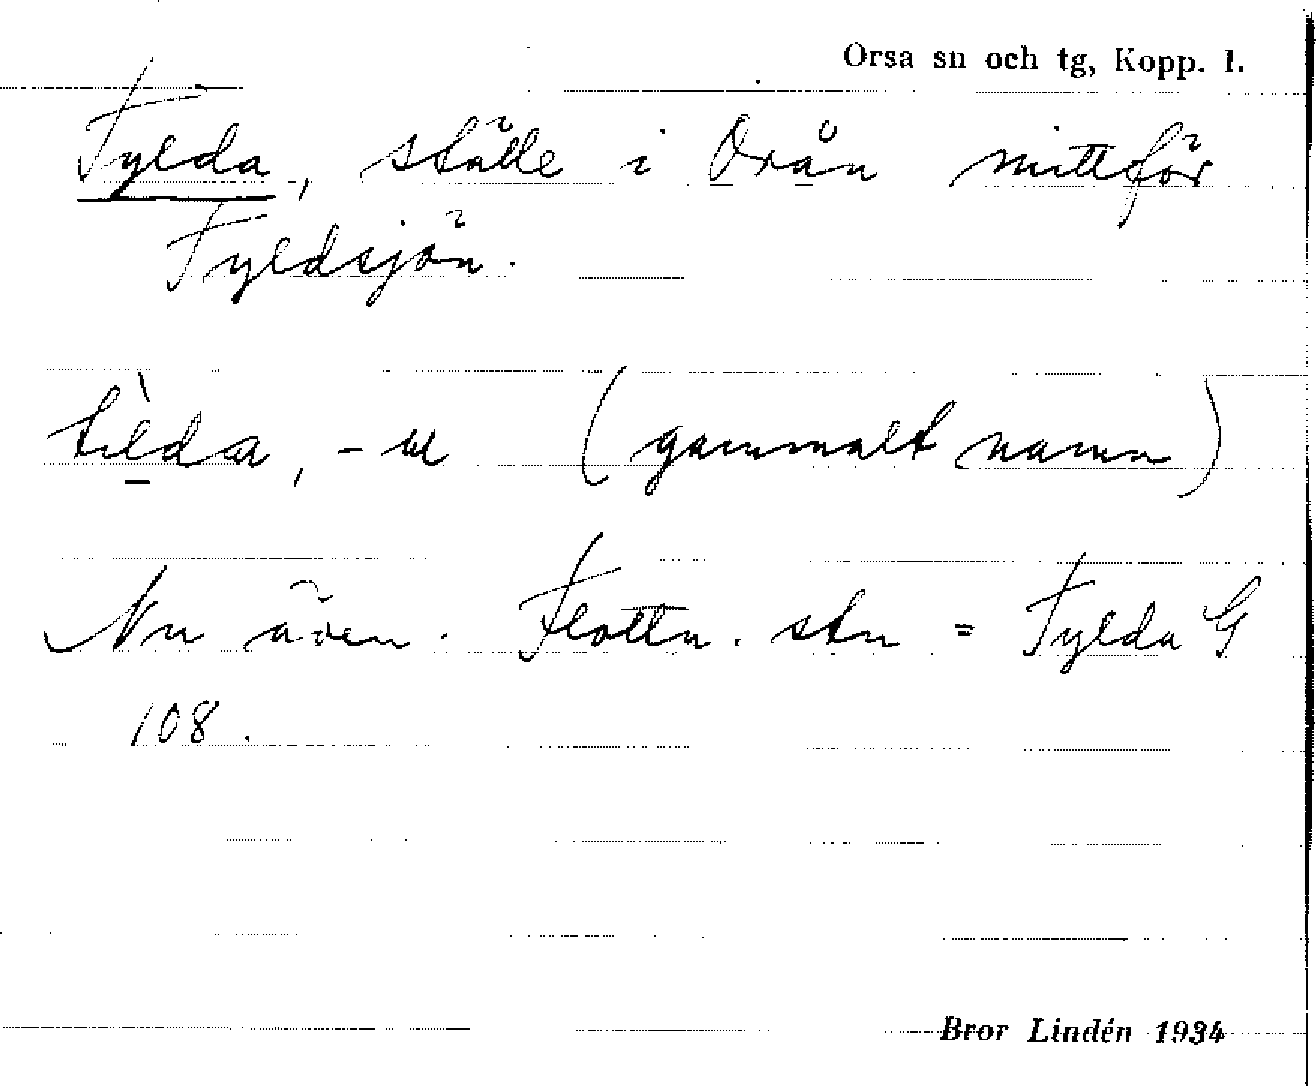 Orsa sn och tg, Kopp. l.
Fylda, ställe i Orån mittför
Fyldsjön.
(gammalt namn)
Nu även. Flottn. stn = Fylda G
108.
Bror Lindén 1934